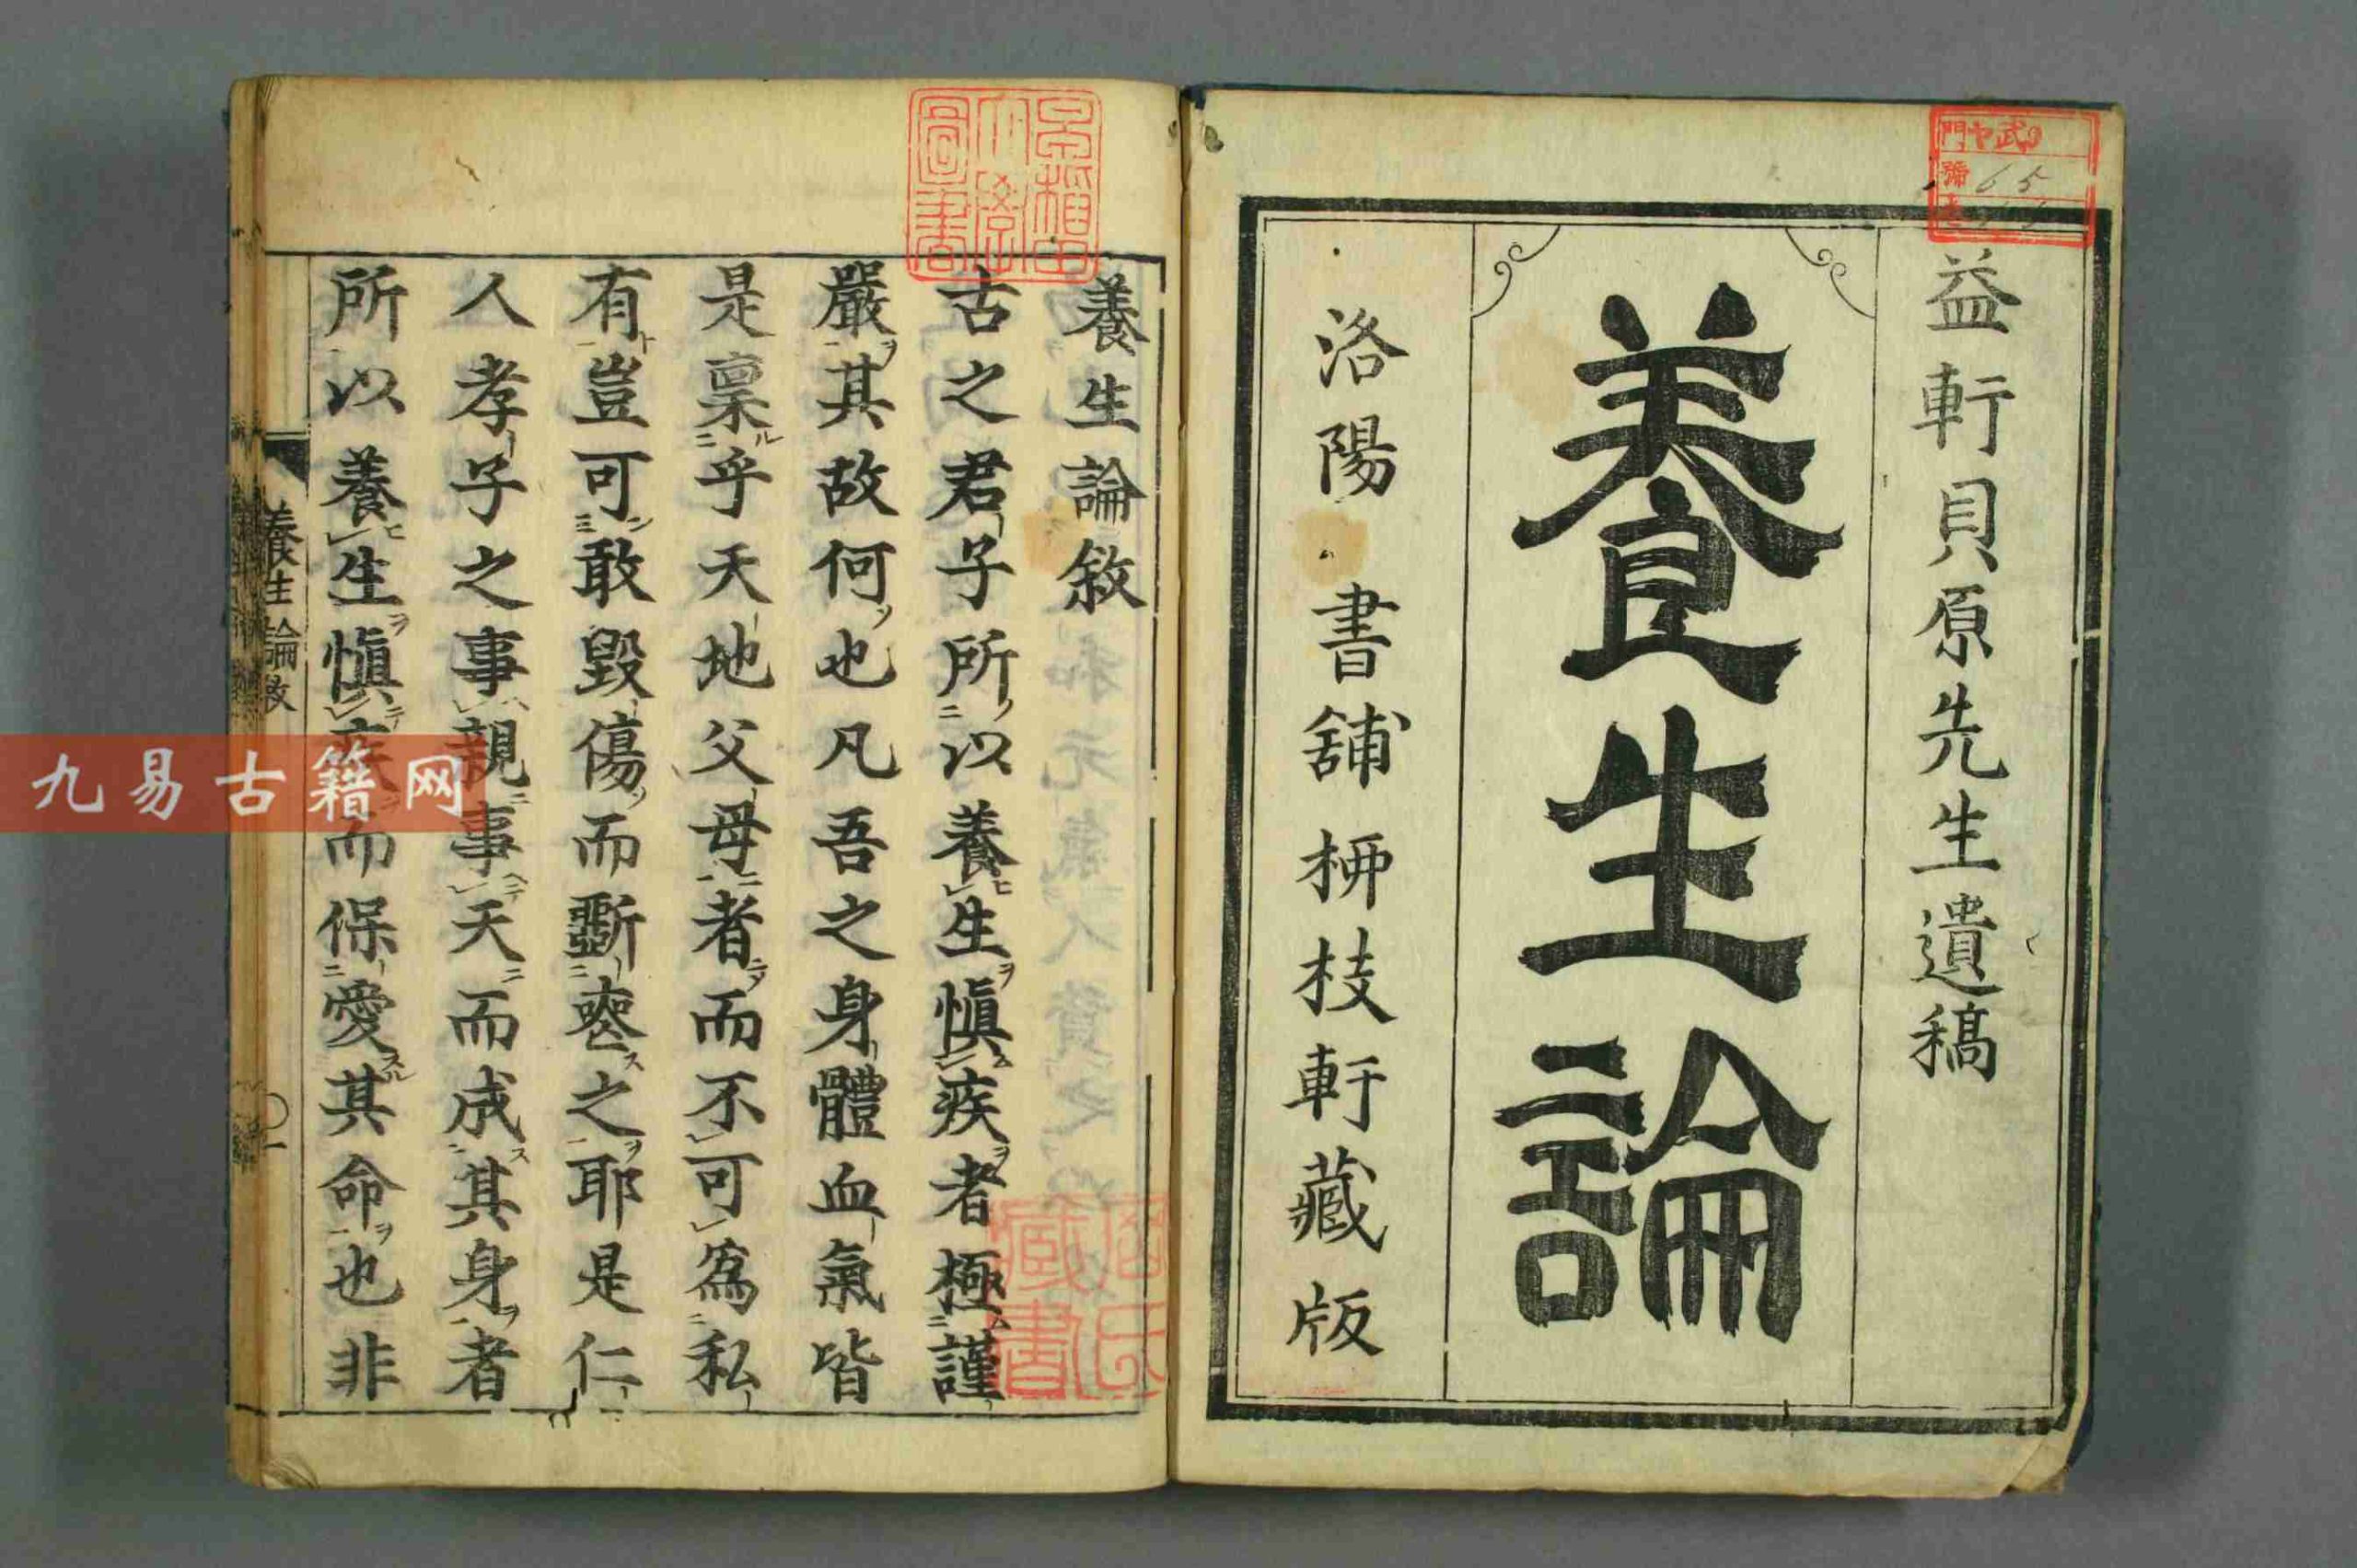 益軒貝原先生遺稿
養生論
洛陽 書舗 柳枝軒藏版
養生論敘
古之君子所以養生愼疾者極謹
嚴其故何也凡吾之身體血氣皆
是稟乎天地父母者而不可爲私
有豈可敢毀傷而斵喪之耶是仁
人孝子之事親事天而成其身者
所以養生愼疾而保愛其命也非
養生論敘
〇一
早稲田大學圖書
藏書
門ヤ武
號65
九易古籍网